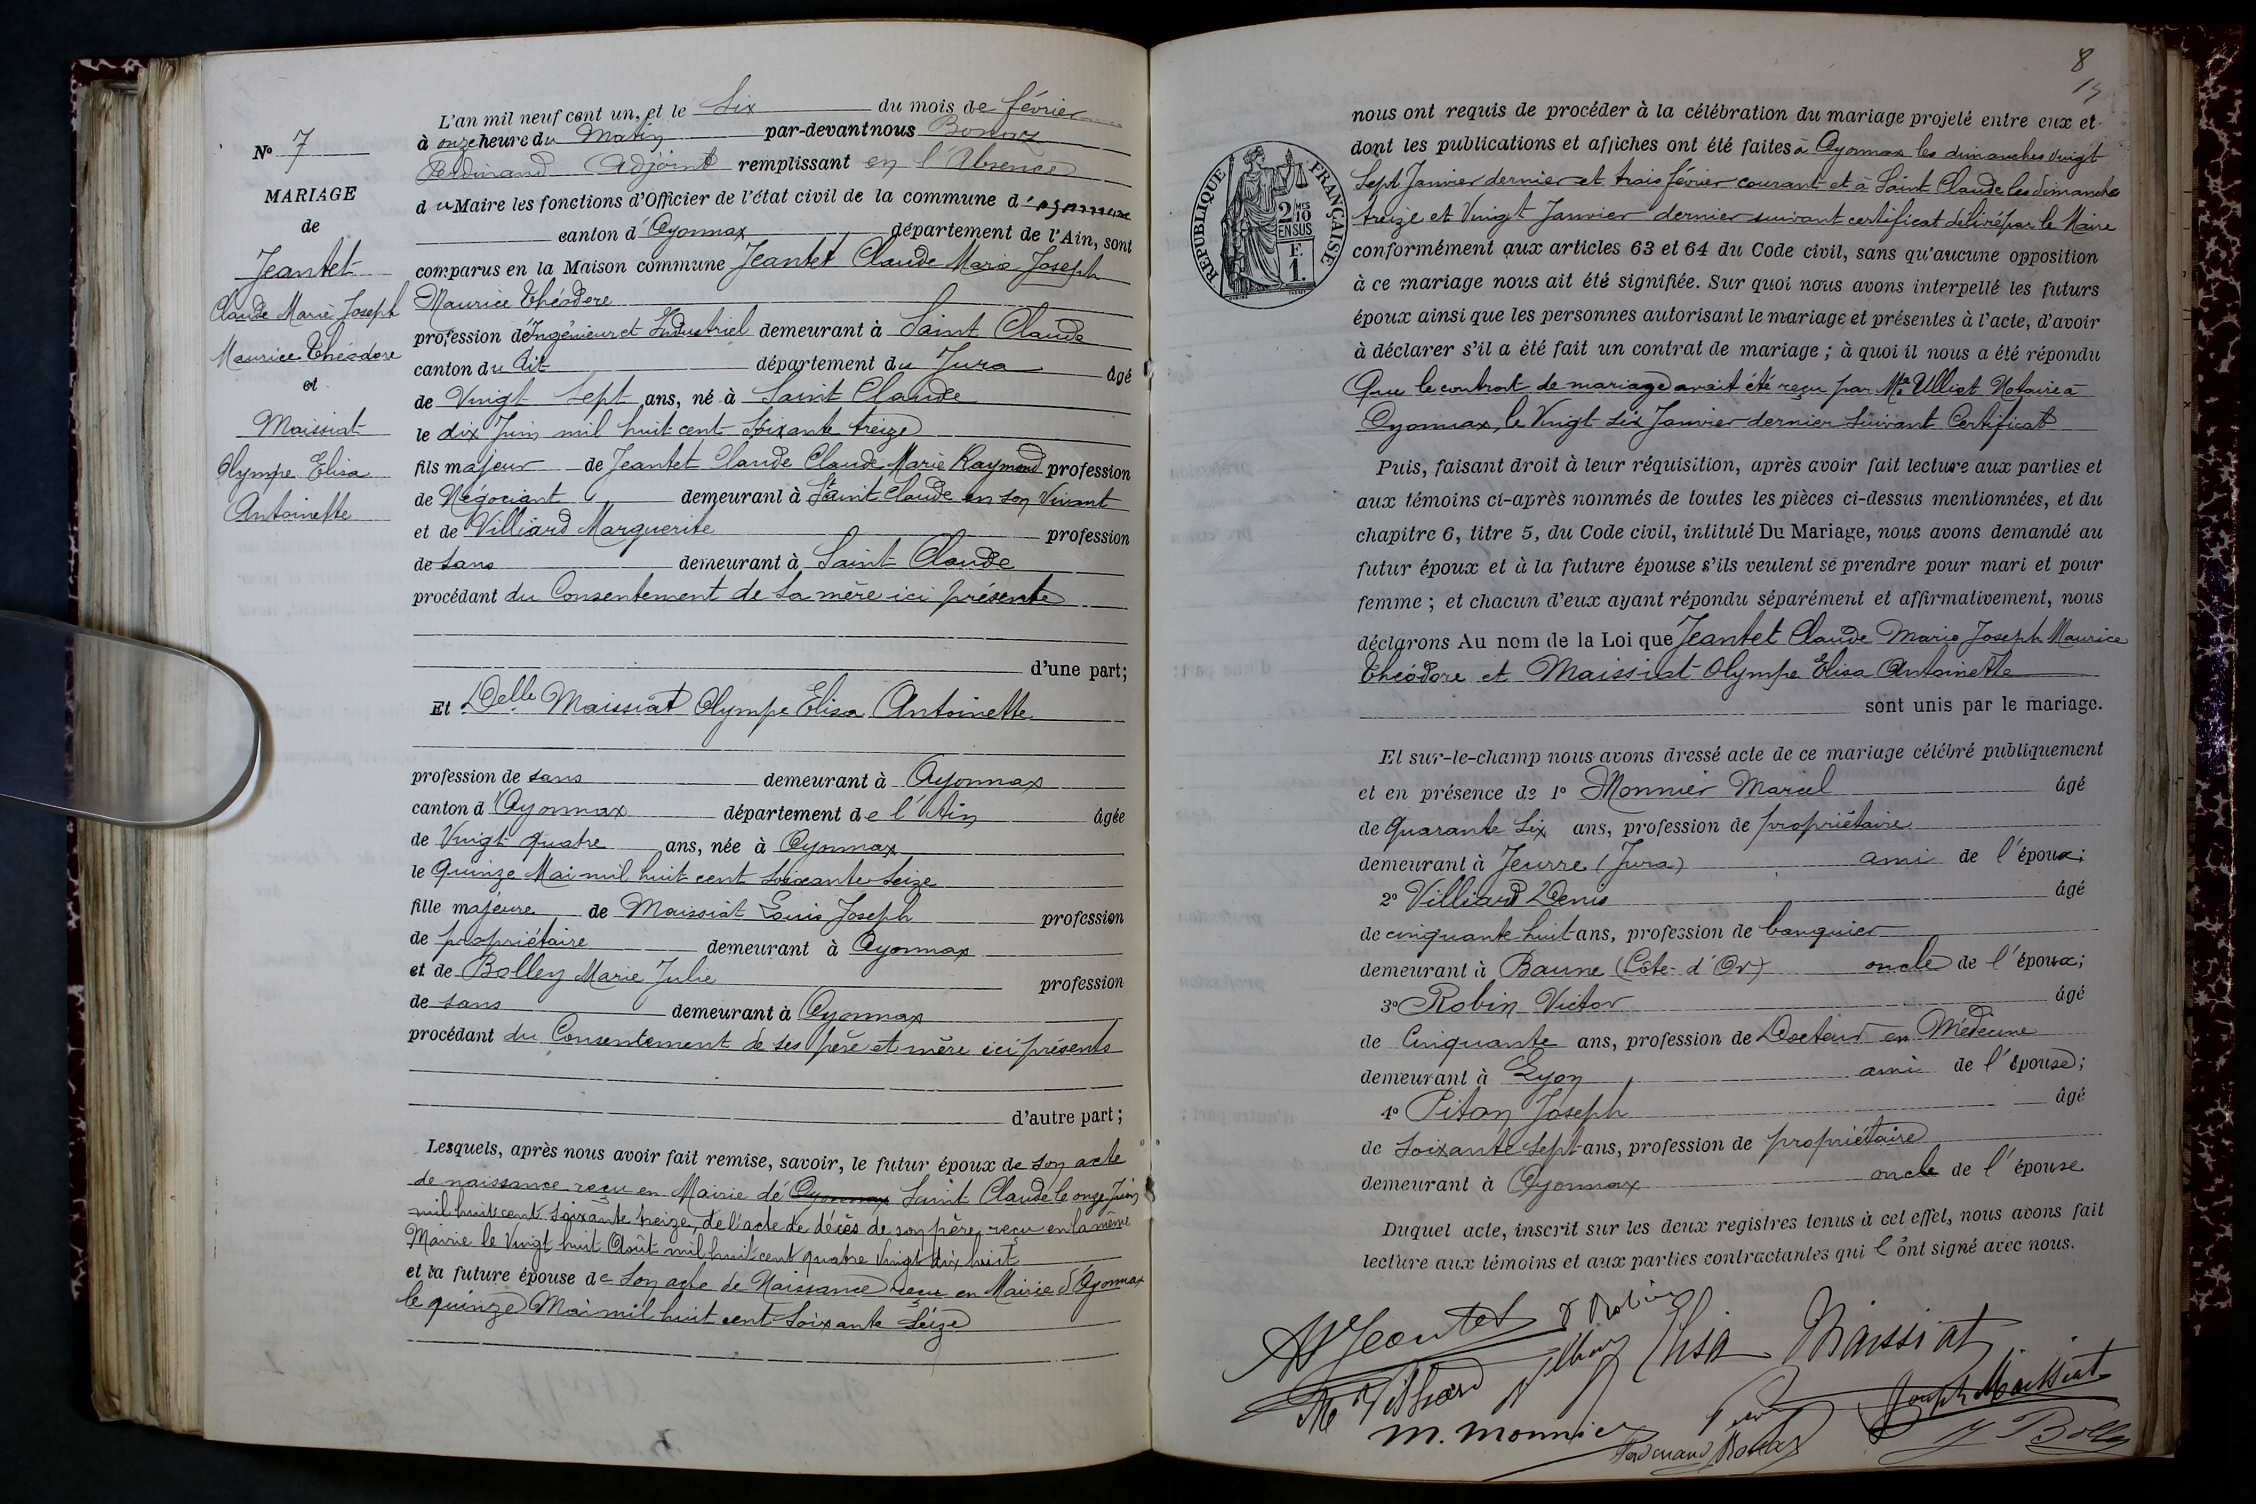 L'an mil neuf cent un, et le Six du mois de février
à onze heure du Matin par-devant nous Bonaz
Ferdinand Adjoint remplissant en l'Absence
du Maire les fonctions d'Officier de l'état civil de la commune d'Oyonnax
canton d'Oyonnax département de l'Ain, sont
comparus en la Maison commune Jeantet Claude Marie Joseph
Maurice Théodore
profession d'Ingénieur et Industriel demeurant à Saint Claude
canton du dit département du Jura âgé
de Vingt Sept ans, né à Saint Claude
le dix Juin mil huit cent Soixante treize
fils majeur de Jeantet Claude Claude Marie Raymond profession
de Négociant demeurant à Saint Claude en son Vivant
et de Villiard Marguerite profession
de sans demeurant à Saint Claude
procédant du Consentement de Sa mère ici présente
d'une part;
Et Delle Maissiat Olympe Elisa Antoinette
profession de sans demeurant à Oyonnax
canton d'Oyonnax département de l'Ain âgée
de Vingt quatre ans, née à Oyonnax
le Quinze Mai mil huit cent Soixante Seize
fille majeure de Maissiat Louis Joseph profession
de propriétaire demeurant à Oyonnax
et de Bolley Marie Julie profession
de sans demeurant à Oyonnax
procédant du Consentement de ses père et mère ici présents
d'autre part;
Lesquels, après nous avoir fait remise, savoir, le futur époux de son acte
de naissance reçu en Mairie de Oyonnax Saint Claude le onze Juin
mil huit cent soixante treize, de l'acte de décès de son père, reçu en la même
Mairie le Vingt huit Août mil huit cent quatre Vingt dix huit
et la future épouse de Son acte de Naissance reçu en Mairie d'Oyonnax
le quinze Mai mil huit cent Soixante Seize
No 7
MARIAGE
de
Jeantet
Claude Marie Joseph
Maurice Théodore
et
Maissiat
Olympe Elisa
Antoinette
8
RÉPUBLIQUE FRANÇAISE
2 MES 10
EN SUS
F.
1.
nous ont requis de procéder à la célébration du mariage projeté entre eux et
dont les publications et affiches ont été faites à Oyonnax les dimanches vingt
Sept Janvier dernier et trois février courant et à Saint Claude les dimanches
treize et Vingt Janvier dernier suivant certificat délivré par le Maire
conformément aux articles 63 et 64 du Code civil, sans qu'aucune opposition
à ce mariage nous ait été signifiée. Sur quoi nous avons interpellé les futurs
époux ainsi que les personnes autorisant le mariage et présentes à l'acte, d'avoir
à déclarer s'il a été fait un contrat de mariage; à quoi il nous a été répondu
Que le contrat de mariage avait été reçu par Me Ulliat Notaire à
Oyonnax, le Vingt Six Janvier dernier Suivant Certificat
Puis, faisant droit à leur réquisition, après avoir fait lecture aux parties et
aux témoins ci-après nommés de toutes les pièces ci-dessus mentionnées, et du
chapitre 6, titre 5, du Code civil, intitulé Du Mariage, nous avons demandé au
futur époux et à la future épouse s'ils veulent se prendre pour mari et pour
femme; et chacun d'eux ayant répondu séparément et affirmativement, nous
déclarons Au nom de la Loi que Jeantet Claude Marie Joseph Maurice
Théodore et Maissiat Olympe Elisa Antoinette
sont unis par le mariage.
Et sur-le-champ nous avons dressé acte de ce mariage célébré publiquement
et en présence de 1o Monnier Marcel âgé
de quarante Six ans, profession de propriétaire
demeurant à Jeurre (Jura) ami de l'époux;
2o Villiard Denis âgé
de cinquante huit ans, profession de banquier
demeurant à Baune (Côte-d'Or) oncle de l'époux;
3o Robin Victor âgé
de Cinquante ans, profession de Docteur en Médecine
demeurant à Lyon ami de l'épouse;
4o Piton Joseph âgé
de Soixante Sept ans, profession de propriétaire
demeurant à Oyonnax oncle de l'épouse
Duquel acte, inscrit sur les deux registres tenus à cet effet, nous avons fait
lecture aux témoins et aux parties contractantes qui l'ont signé avec nous.
Jeantet Robin Elisa Maissiat
Villiard Joseph Maissiat
M. Monnier Ferdinand Bonaz J Bolley